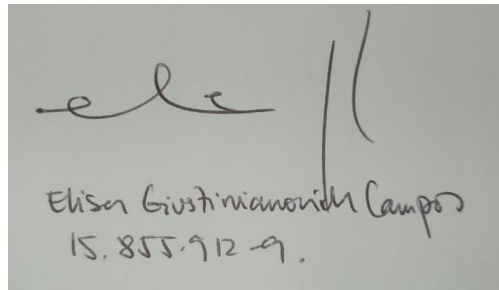 Elisa Giustinianovich Campos
15.855.912-9.